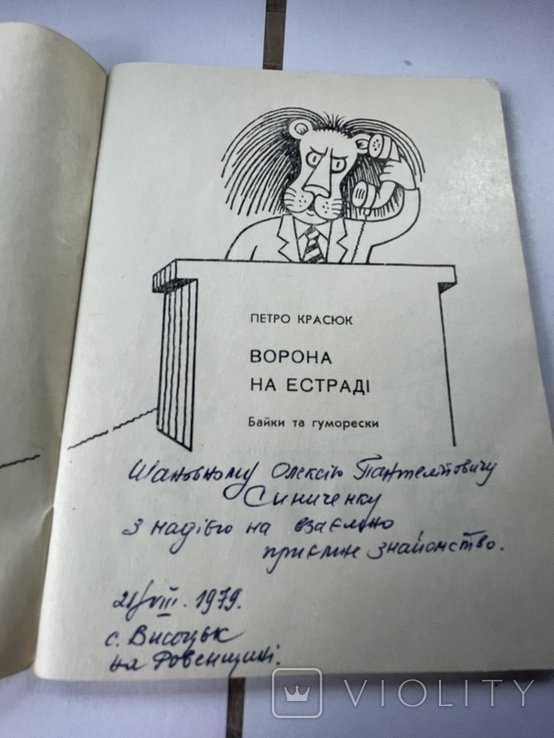 ПЕТРО КРАСЮК
ВОРОНА
НА ЕСТРАДІ
Байки та гуморески
Шановному Олексію Пантелійовичу
Синиченку
з надією на взаємно
приємне знайомство.
21/VIII. 1979.
с. Висоцьк
на Ровенщині.
VIOLITY